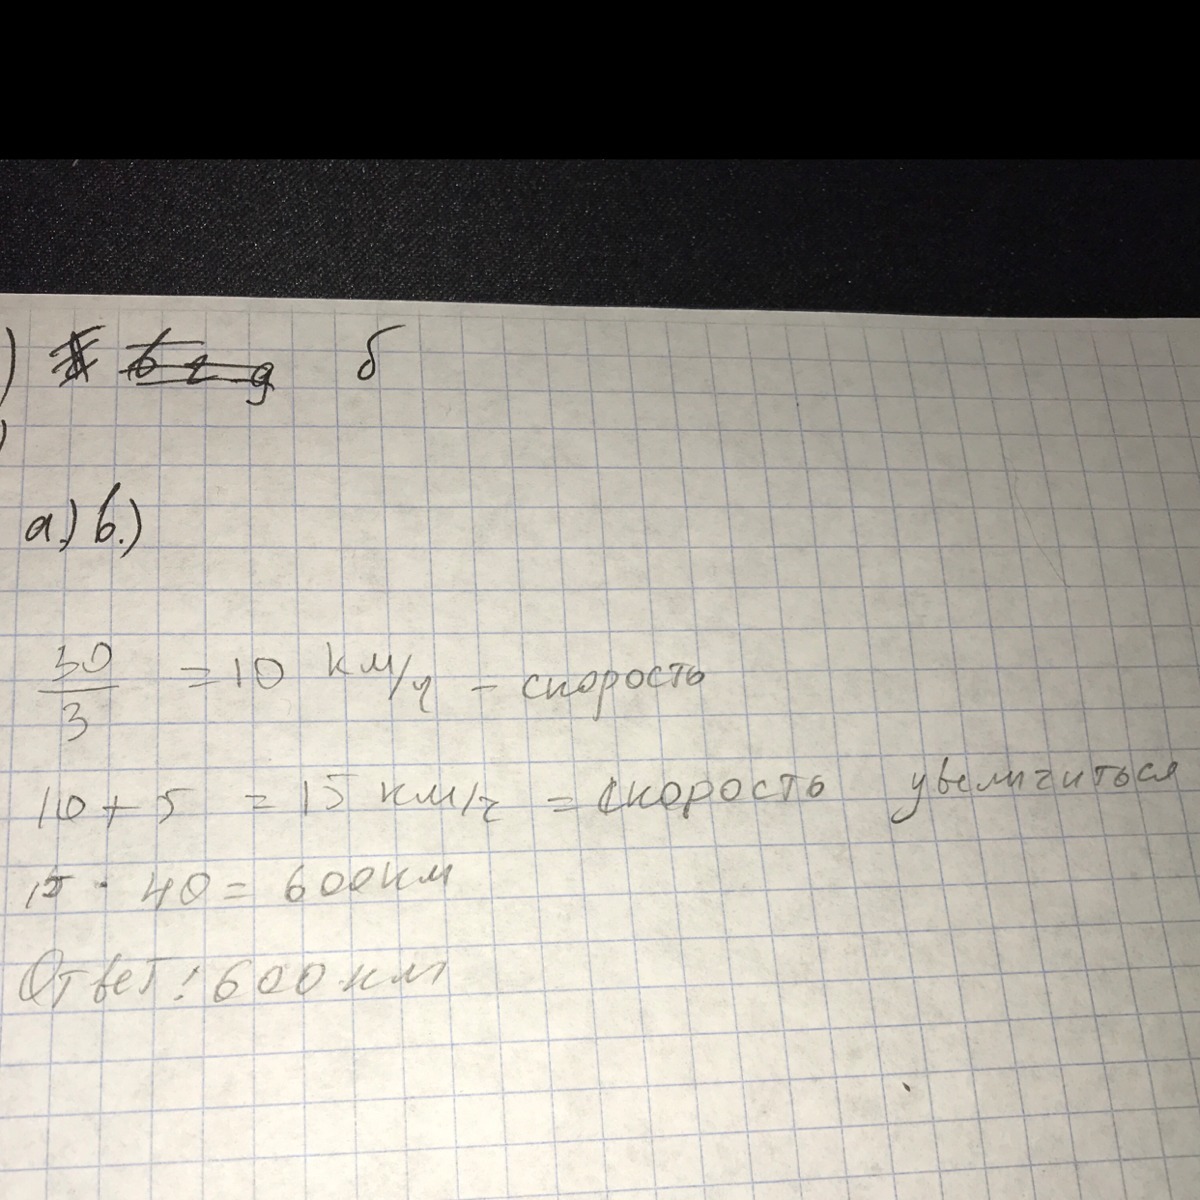 ) б
)
а.) в.)
30/3 = 10 км/ч – скорость
10 + 5 = 15 км/ч = скорость увеличиться
15 · 40 = 600 км
Ответ: 600 км